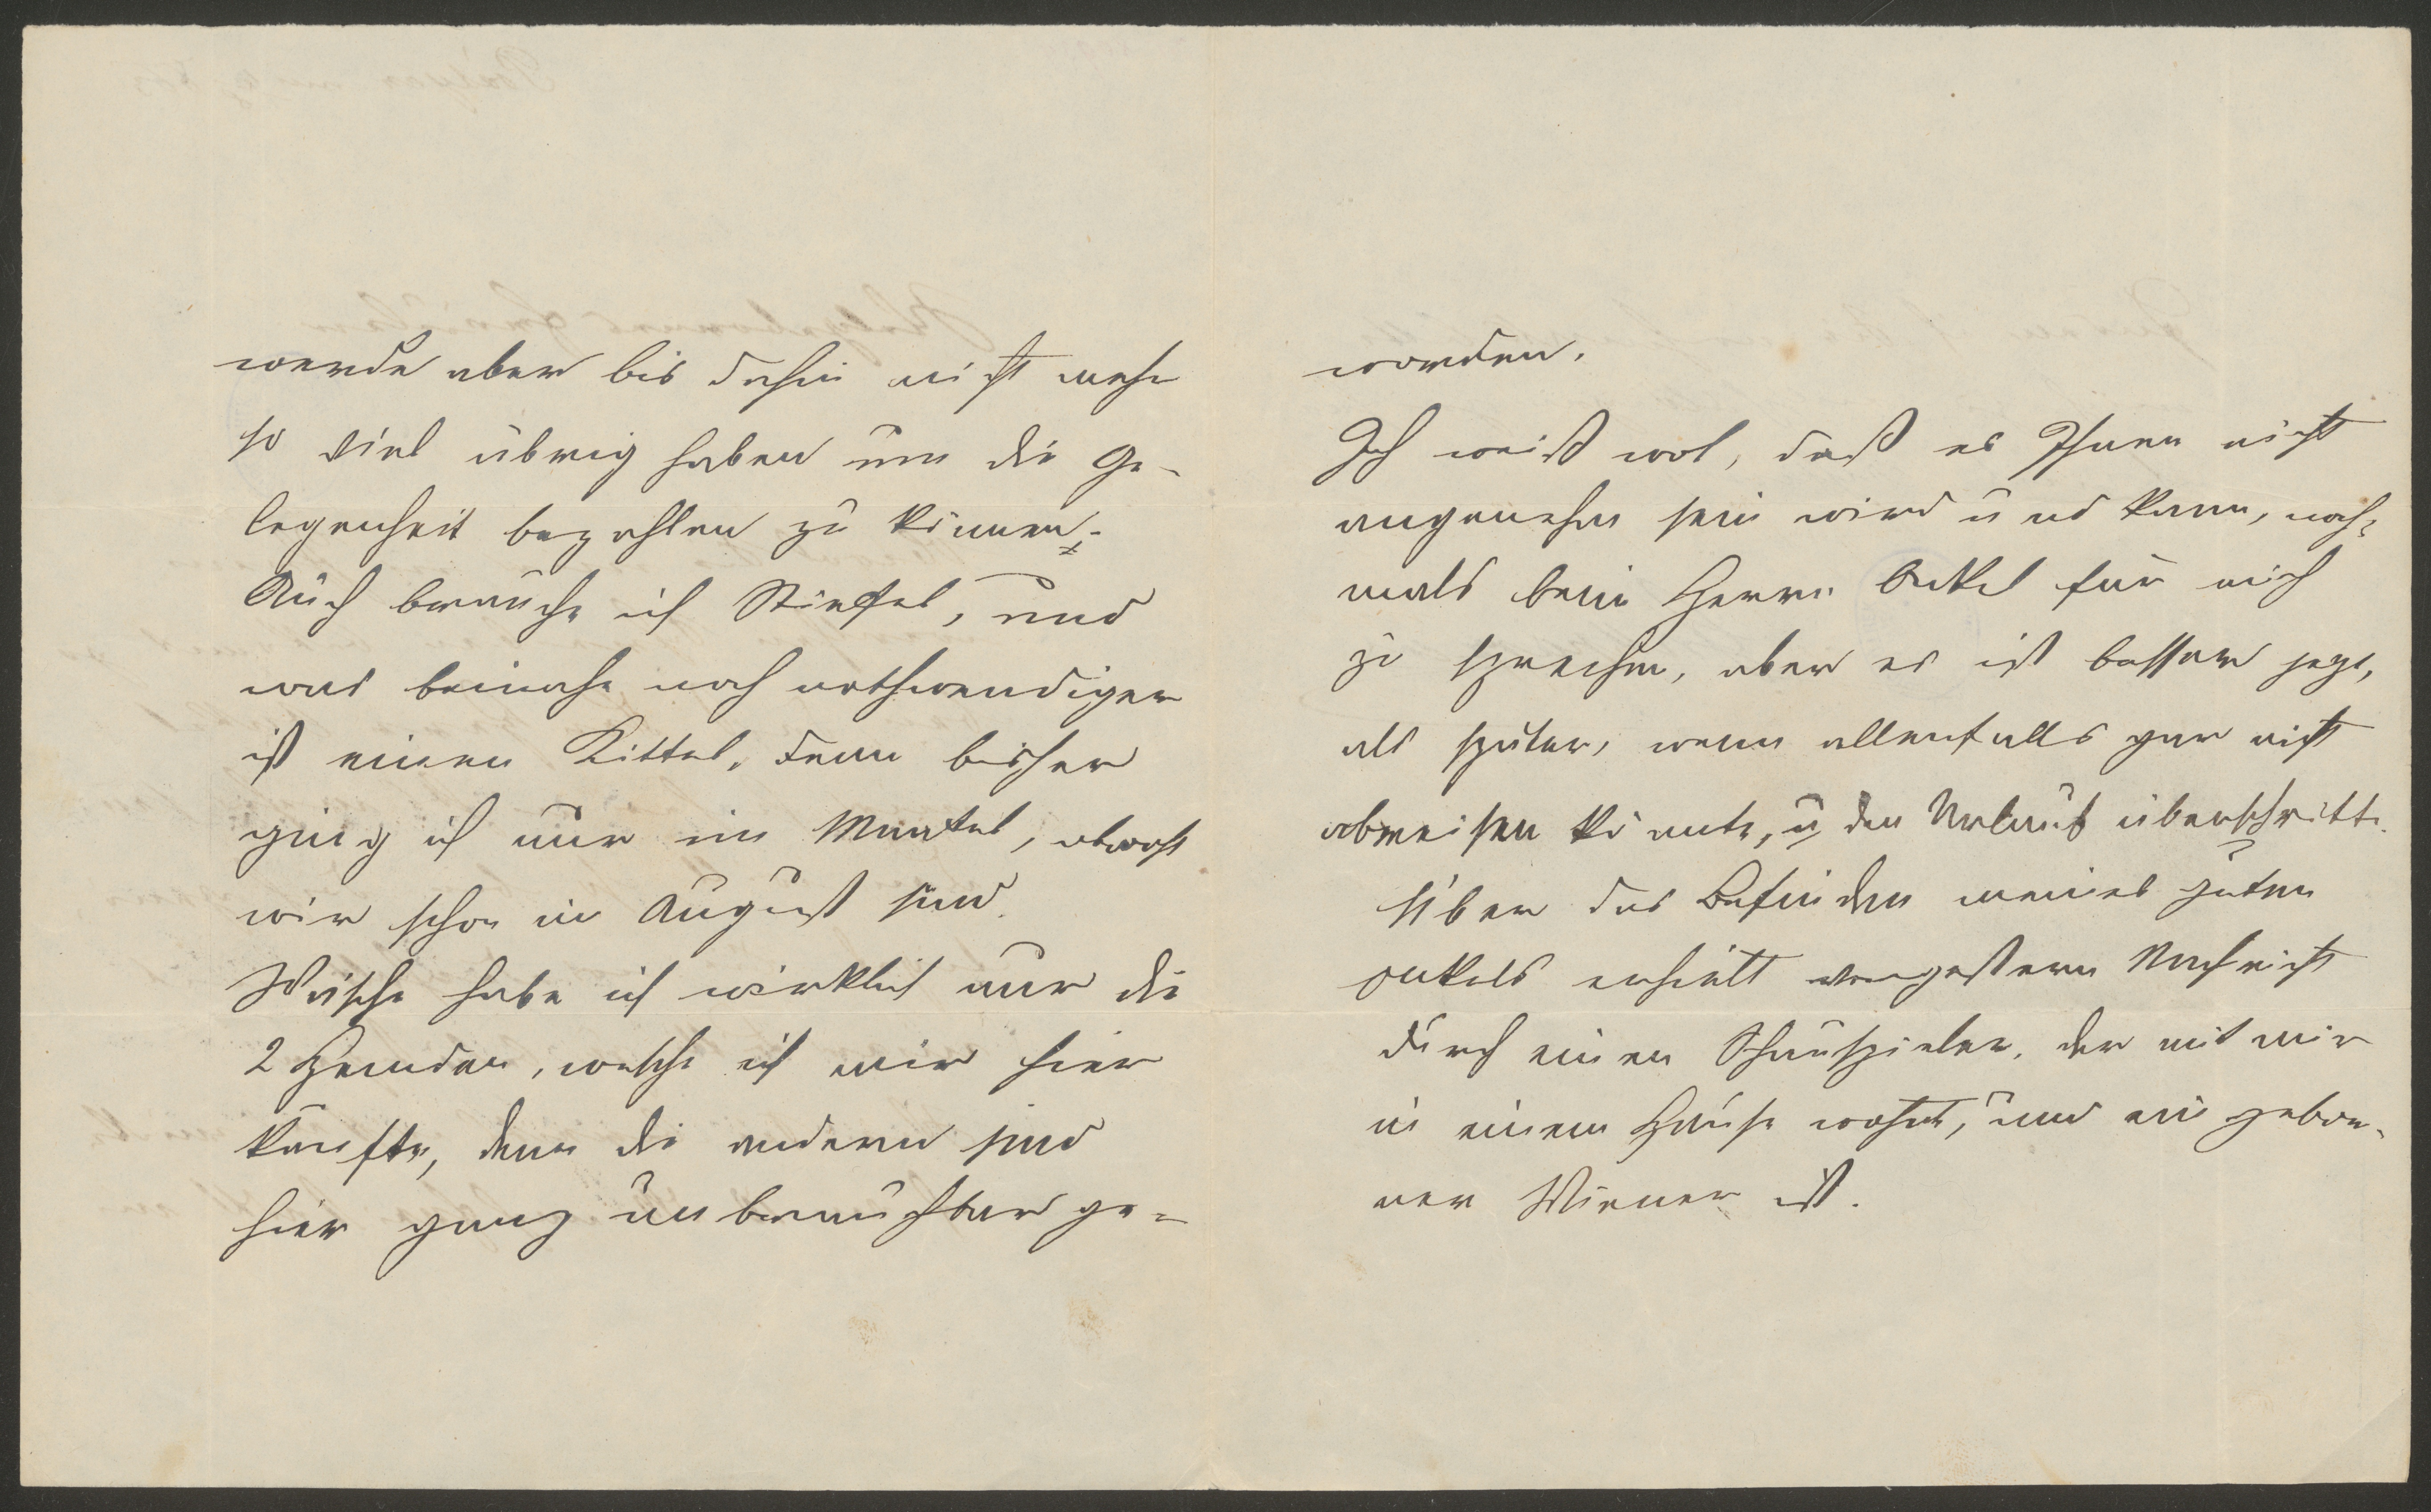 werde aber bis dahin nicht mehr
so viel übrig haben um die Ge-
legenheit bezahlen zu können;-
Auch brauche ich Stiefel, und
was beinahe noch nothwendiger
ist einen Kittel, denn bisher
ging ich nur im Mantel, obwohl
wir schon im August sind.
Wäsche habe ich wirklich nur die
2 Hemden, welche ich mir hier
kaufte, denn die andern sind
hier ganz unbrauchbar ge-
worden.
Ich weiß wol, daß es Ihnen nicht
angenehm sein wird u nd kann, noch-
mals beim Herrn Onkel für mich
zu sprechen, aber es ist besser jezt,
als später, wenn allenfalls gar nicht
abreisen könnte, u. den Urlaub überschritte.
Über das Befinden meines guten
Onkels erhielt vorgestern Nachricht
durch einen Schauspieler, der mit mir
in einem Hause wohnt, und ein gebor-
ner Wiener ist.